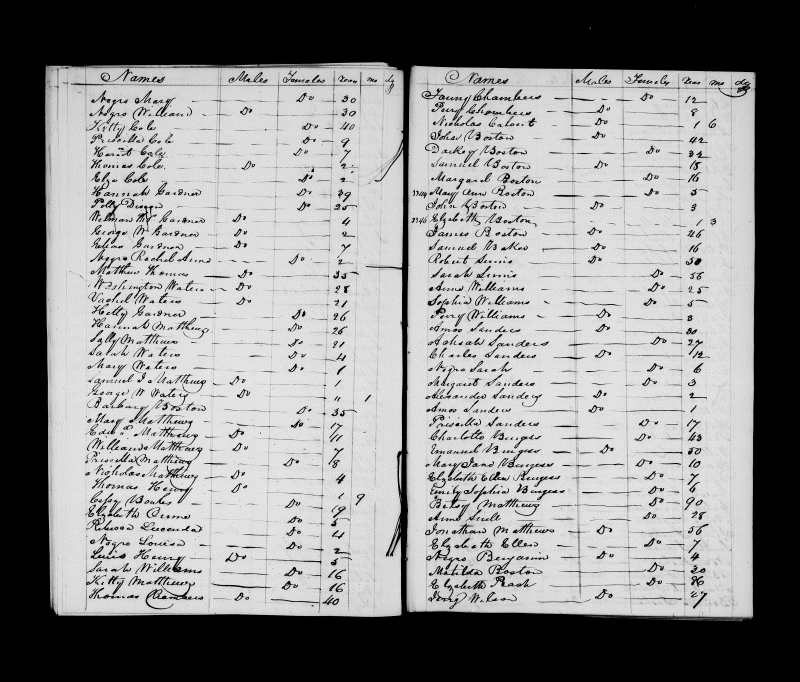 Names Males Females Years mo dy
Negro Mary Do 30
Negro William Do 30
Kitty Cole Do 40
Priscilla Cole Do 9
Harriet Cole Do 7
Thomas Cole Do 2
Eliza Cole Do 2
Hannah Gardner Do 39
Polly Do 25
Gardner Do 4
George W Gardner Do 2
Gardner Do 7
Negro Rachel Anna Do 2
Matthew Thomas Do 35
Washington Waters Do 28
Vachel Waters Do 21
Hetty Gardner Do 26
Hannah Matthews Do 26
Sally Matthews Do 21
Sarah Waters Do 4
Mary Waters Do 1
Samuel J Matthews Do 1
George W Waters Do " 1
Barbary Boston Do 35
Mary Matthews Do 17
Matthews Do 11
William Matthews Do 7
Priscilla Matthews Do 8
Nicholas Matthews Do 4
Thomas Henry Do
Cepsy Bowles Do 1 9
Elizabeth Do 19
Rebecca Lucenda Do 4
Negro Louisa Do
Lewis Henry Do 2
Sarah Williams Do 16
Kitty Matthews Do 16
Thomas Chambers Do 40
Names Males Females Years mo dy
Fanny Chambers Do 12
Perry Chambers Do 8
Nicholas Calvert Do 1 6
John Boston Do 42
Darkey Boston Do 32
Samuel Boston Do 18
Margaret Boston Do 16
Mary Ann Boston Do 5
John Boston Do 3
Elizabeth Boston 1 3
James Boston Do 46
Samuel Baker Do 16
Robert Do 50
Sarah Do 56
Anne Williams Do 25
Sophia Williams Do 5
Perry Williams Do 3
Amos Sanders Do 30
Achsah Sanders Do 27
Charles Sanders Do 12
Negro Sarah Do 6
Margaret Sanders Do 3
Alexander Sanders Do 2
Amos Sanders Do 1
Priscilla Sanders Do 17
Charlotte Burgess Do 43
Emanuel Burgess Do 50
Mary Jane Burgess Do 10
Elizabeth Ellen Burgess Do 7
Emily Sophia Burgess Do 6
Betsy Matthews Do 90
Anne Do 28
Jonathan Matthews Do 56
Elizabeth Ellen Do 7
Negro Benjamin Do 4
Matilda Boston Do 30
Elizabeth Do 26
Wilson Do 47